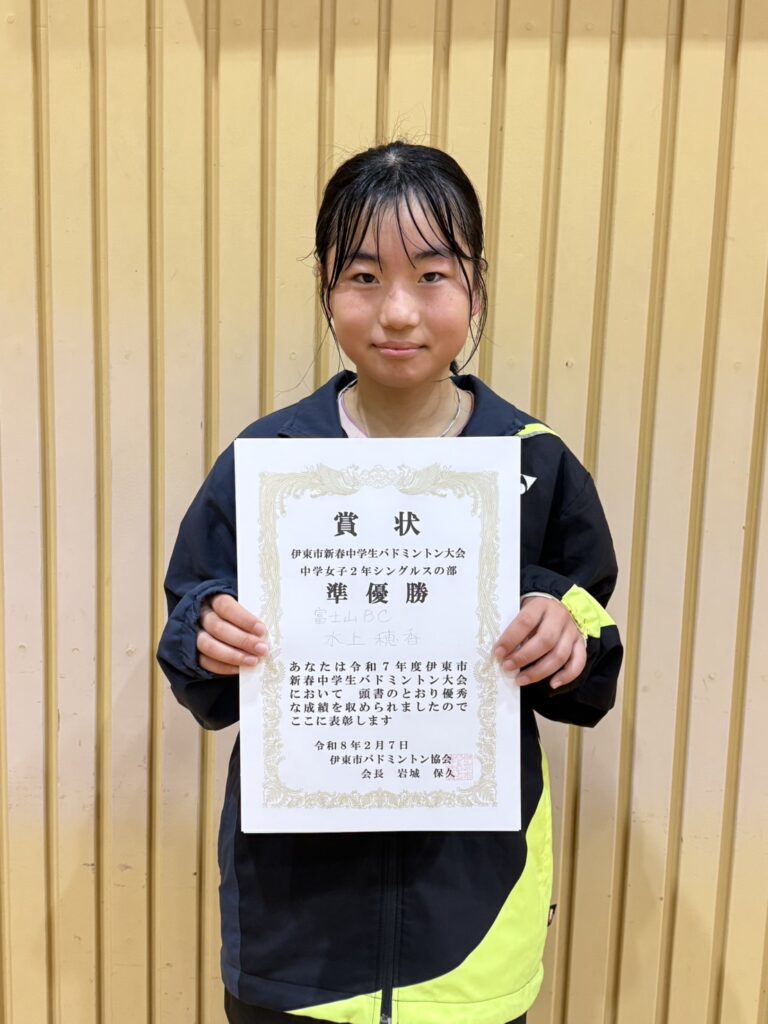 賞状
伊東市新春中学生バドミントン大会
中学女子2年シングルスの部
準優勝
富士山BC
水上穂香
あなたは令和7年度伊東市
新春中学生バドミントン大会
において 頭書のとおり優秀
な成績を収められましたので
ここに表彰します
令和8年2月7日
伊東市バドミントン協会
会長 岩城 保久